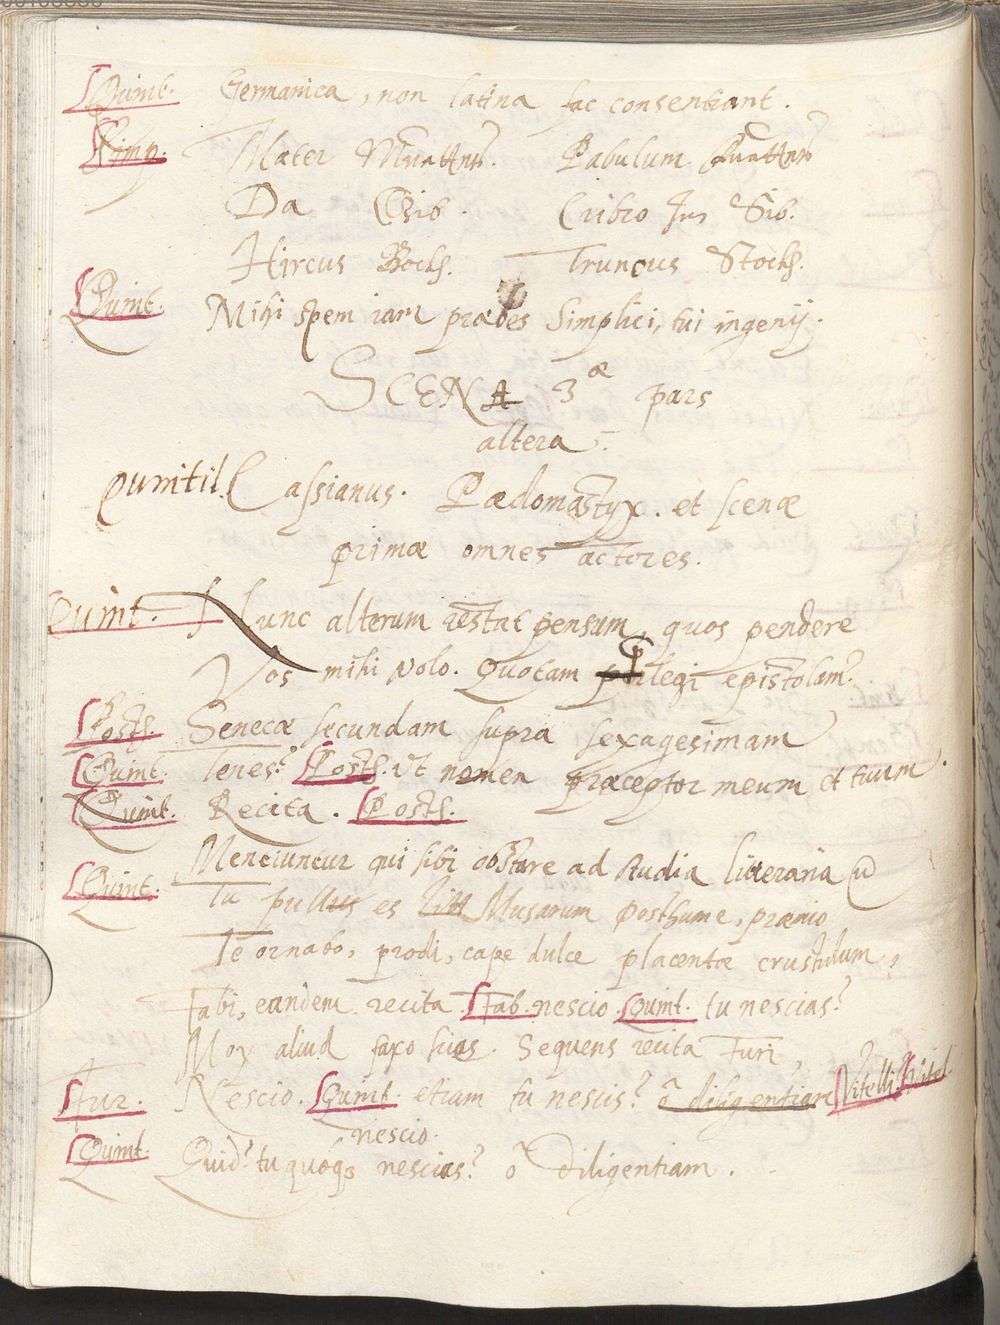 Quint. Germanica, non latina fac consentiant.
Simp. Mater Muatter. Pabulum Fuatter
Da Chib. Cribro Jn Sib.
Hircus Bockh. Truncus Stockh.
Quint. Mihi spem iam præbes simplici, tui ingenij.
SCENA 3æ pars
altera.
Quintil. Cassianus. Pædomastyx. et scenæ
primæ omnes actores.
Quint. Nunc alterum restat pensum, quos pendere
Vos mihi volo. Quotam prælegi epistolam?
Posth. Senecæ secundam supra sexagesimam
Quint. Tenes? Posth. Vt nomen præceptor meum et tuum.
Quint. Recita. Posth.
Mentiuntur qui sibi obstare ad studia litteraria
Quint. Tu pullus es Musarum Posthume, præmio
Te ornabo, prodi, cape dulce placentæ crustulum,
Fabi, eandem recita Fab. nescio. Quint. tu nescias?
Mox aliud faxo hias. Sequens recita Furi,
Fur. Nescio. Quint. etiam tu nescis? ô diligentiam Vitelli Vitel.
nescio.
Quint. Quid? tu quoq3 nescias? ô diligentiam.